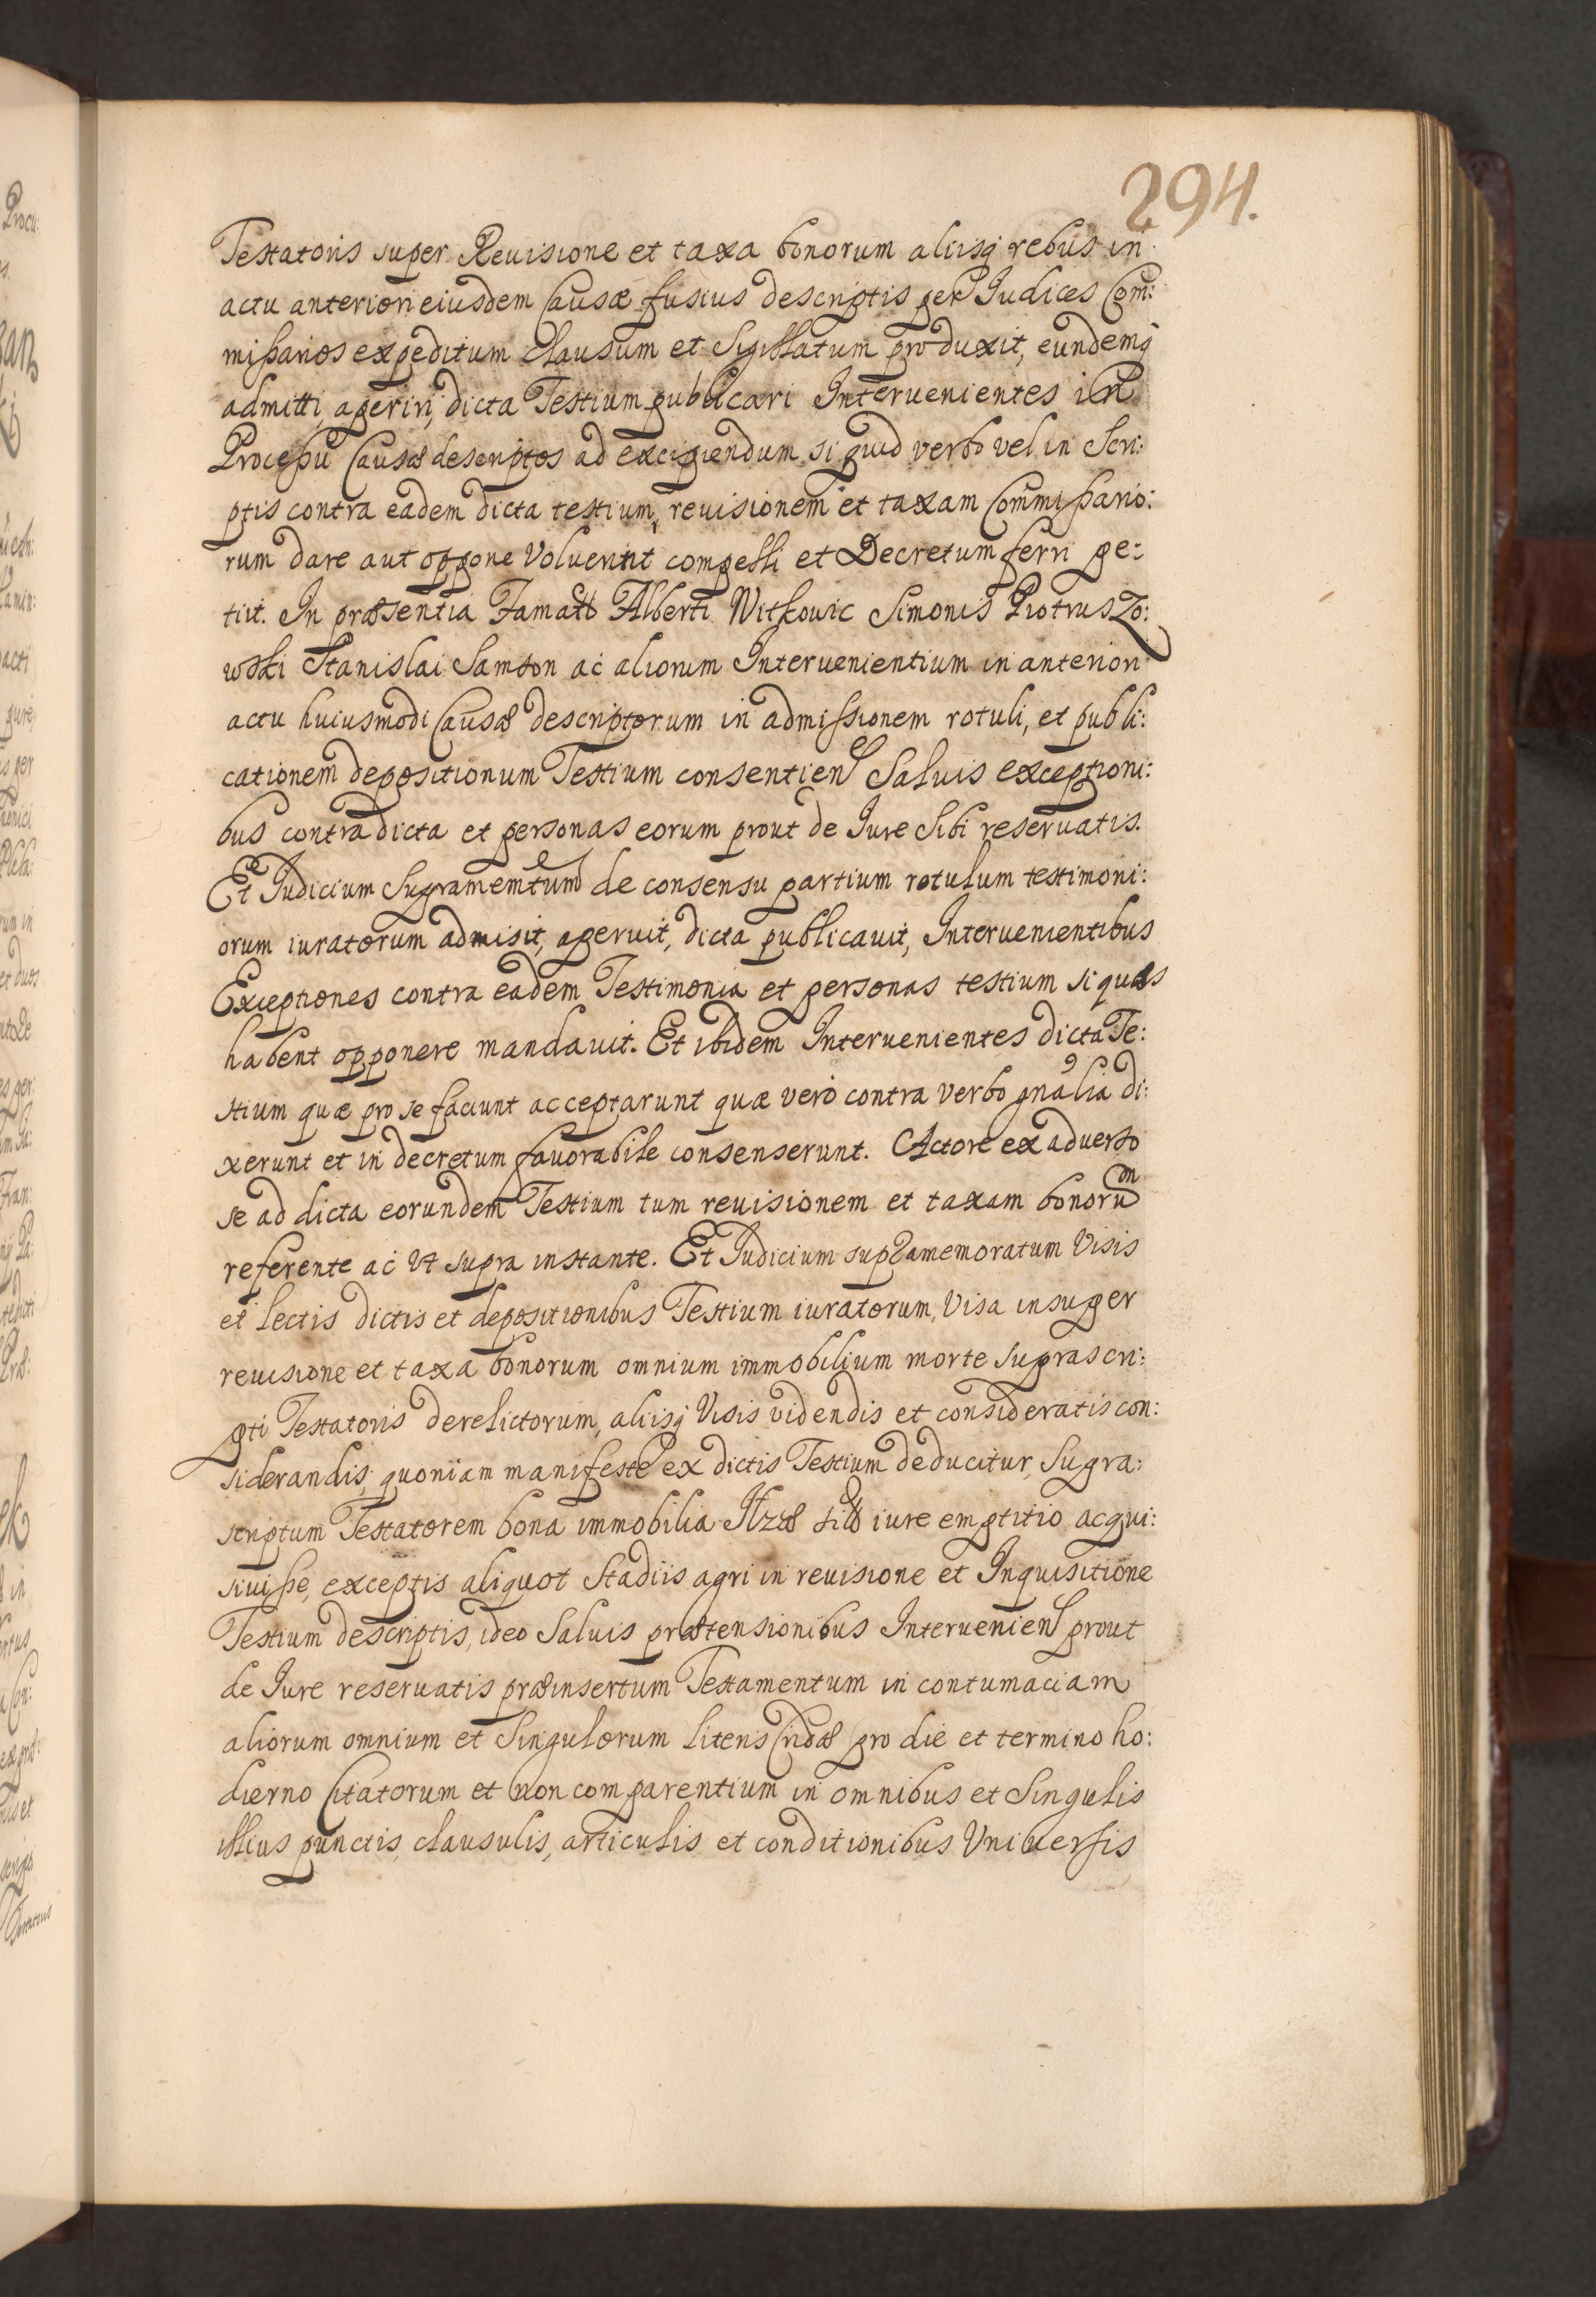 294.
Testatoris super Reuisione et taxa bonorum aliisq́ rebus in
actu anteriori eiusdem Causæ fusius descriptis per Iudices Com:
mißarios expeditum clausum et Sigillatum produxit, eundemq́
admitti, aperiri, dicta Testium publicari Interuenientes in
Proceßu Causæ descriptos ad excipiendum si quid verbo vel in Scri:
ptis contra eadem dicta testium, reuisionem et taxam Commißario:
rum dare aut oppone Voluerint compelli et Decretum ferri pe:
tiit. In præsentia Famatt Alberti Witkowic Simonis Piotruszo:
wski Stanislai Samson ac aliorum Interuenientium in anteriori
actu huiusmodi Causæ descriptorum in admissionem rotuli, et publi:
cationem depositionum Testium consentien Saluis exceptioni:
bus contra dicta et personas eorum prout de Iure Sibi reseruatis.
Et Iudicium Supramemtum de consensu partium rotulum testimoni:
orum iuratorum admisit, aperuit, dicta publicauit, Interuenientibus
Exceptiones contra eadem Testimonia et personas testium si quas
habent opponere mandauit. Et ibidem Interuenientes dicta Te:
stium quæ pro se faciunt acceptarunt quæ vero contra verbo gnalia di:
xerunt et in decretum fauorabile consenserunt. Actore ex aduerso
se ad dicta eorundem Testium tum reuisionem et taxam bonorum
referente ac Vt supra instante. Et Iudicium supramemoratum Visis
et lectis dictis et depositionibus Testium iuratorum, Visa insuper
reuisione et taxa bonorum omnium immobilium morte suprascri:
pti Testatoris derelictorum, aliisq́ Visis videndis et consideratis con:
siderandis, quoniam manifeste ex dictis Testium deducitur, Supra:
scriptum Testatorem bona immobilia Ilzæ sitt iure emptitio acqui:
siuiße, exceptis aliquot Stadiis agri in reuisione et Inquisitione
Testium descriptis, ideo Saluis prætensionibus Interuenien prout
de Iure reseruatis præinsertum Testamentum in contumaciam
aliorum omnium et Singulorum literis Cridæ pro die et termino ho:
dierno Citatorum et non comparentium in omnibus et Singulis
illius punctis, clausulis, articulis et conditionibus Vniuersis